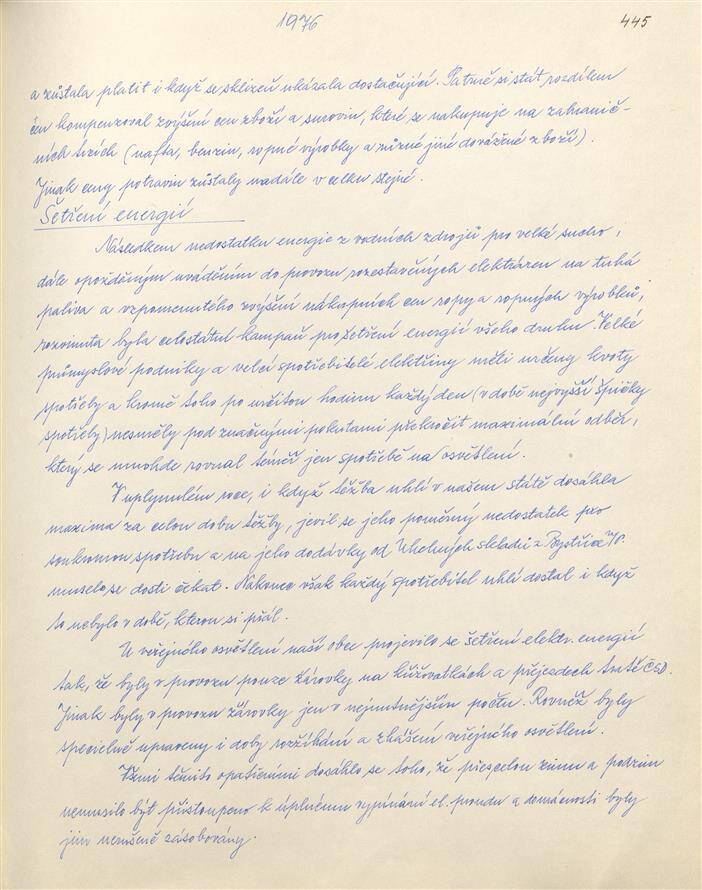 1976
445
a zůstala platit i když se sklizeň ukázala dostačující. Patrně si stát rozdílem
cen kompenzoval zvýšení cen zboží a surovin, které se nakupuje na zahranič-
ních trzích (nafta, benzin, ropné výrobky a různé jiné dovážené zboží).
Jinak ceny potravin zůstaly nadále v celku stejné.
Šetření energií
Následkem nedostatku energie z vodních zdrojů pro velké sucho,
dále opožděným uváděním do provozu rozestavěných elektráren na tuhá
paliva a vzpomenutého zvýšení nákupních cen ropy a ropných výrobků,
rozvinuta byla celostátní kampaň pro šetření energií všeho druhu. Velké
průmyslové podniky a velcí spotřebitelé elektřiny měli určeny kvoty
spotřeby a kromě toho po určitou hodinu každý den (v době nejvyšší špičky
spotřeby) nesměly pod značnými pokutami překročit maximální odběr,
který se mnohde rovnal téměř jen spotřebě na osvětlení.
V uplynulém roce, i když těžba uhlí v našem státě dosáhla
maxima za celou dobu těžby, jevil se jeho poměrný nedostatek pro
soukromou spotřebu a na jeho dodávky od Uhelných skladů z Bystřice n/P.
muselo se dosti čekat. Nakonec však každý spotřebitel uhlí dostal i když
to nebylo v době, kterou si přál.
U veřejného osvětlení naší obec projevilo se šetření elektr. energií
tak, že byly v provozu pouze žárovky na křižovatkách a přejezdech tratě ČSD.
Jinak byly v provozu žárovky jen v nejnutnějším počtu. Rovněž byly
specielně upraveny i doby rozžíhání a zhášení veřejného osvětlení.
Všemi těmito opatřeními dosáhlo se toho, že přes celou zimu a podzim
nemusilo být přistoupeno k úplnému vypínání el. proudu a domácnosti byly
jím nerušeně zásobovány.